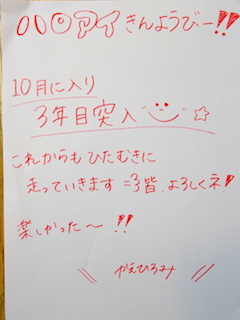 ハロアイきんようびー!!
10月に入り
3年目突入 ☆
これからもひたむきに
走っていきます =3 皆、よろしくネ!
楽しかった〜 !!
\\ かえひろみ //